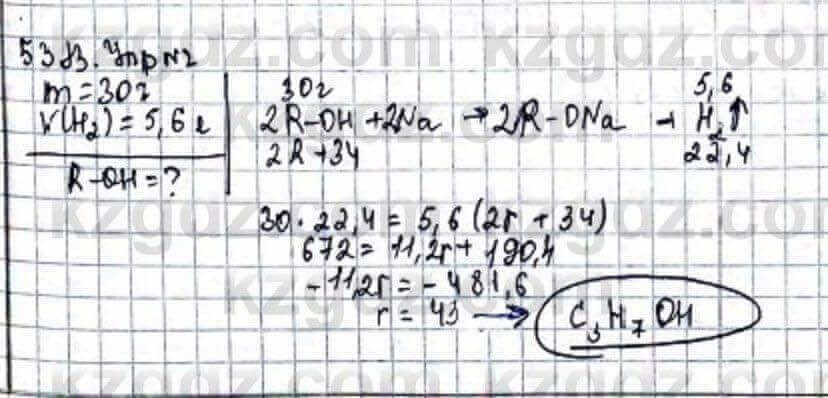 53 Упр №2
m = 30г
V(H₂) = 5,6 л
R-OH = ?
30г 5,6
2R-OH + 2Na → 2R-ONa + H₂↑
2R+34 22,4
30 · 22,4 = 5,6 (2r + 34)
672 = 11,2r + 190,4
-11,2r = -481,6
r = 43 → C₃H₇OH
kzgdz.com